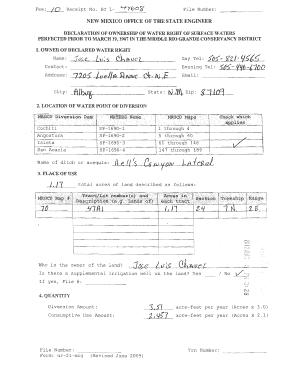 Fee: 10 Receipt No. Br 1- 47608 File Number:
NEW MEXICO OFFICE OF THE STATE ENGINEER
DECLARATION OF OWNERSHIP OF WATER RIGHT OF SURFACE WATERS
PERFECTED PRIOR TO MARCH 19, 1907 IN THE MIDDLE RIO GRANDE CONSERVANCY DISTRICT
1. OWNER OF DECLARED WATER RIGHT
Name: Jose Luis Chavez Day Tel: 505-821-4565
Contact: Evening Tel:
Address: 7205 Email:
City: Albuq State: NM Zip: 87109
2. LOCATION OF WATER POINT OF DIVERSION
MRGCD Diversion Dam WATERS Name MRGCD Maps Check which applies
Cochiti SP-1690-1 1 through 4
Angostura SP-1690-2
Isleta SP-1690-3
San Acacia SP-1690-4 147 through 189
Name of ditch or acequia: Hell's Canyon Lateral
3. PLACE OF USE
1.17 total acres of land described as follows:
MRGCD Map # Tract/Lot number(s) and Description (e.g. lands of) Acres in each tract Section Township Range
70 47A1 1.17 24 7N 2E
Who is the owner of the land? Jose Luis Chavez
Is there a supplemental irrigation well on the land? Yes / No
If yes, File #:
4. QUANTITY
Diversion Amount: 3.51 acre-feet per year (Acres x 3.0)
Consumptive Use Amount: 2.457 acre-feet per year (Acres x 2.1)
File Number: Trn Number:
Form: wr-21-mrg (Revised June 2005)